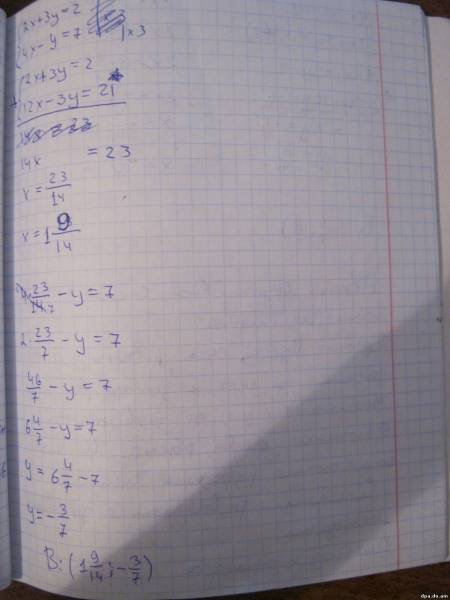 2x+3y=2
4x-y=7 |x3
2x+3y=2
12x-3y=21
14x = 23
x = 23/14
x = 1 9/14
4·23/14 - y = 7
2·23/7 - y = 7
46/7 - y = 7
6 4/7 - y = 7
y = 6 4/7 - 7
y = -3/7
В: (1 9/14; -3/7)
dpa.do.am